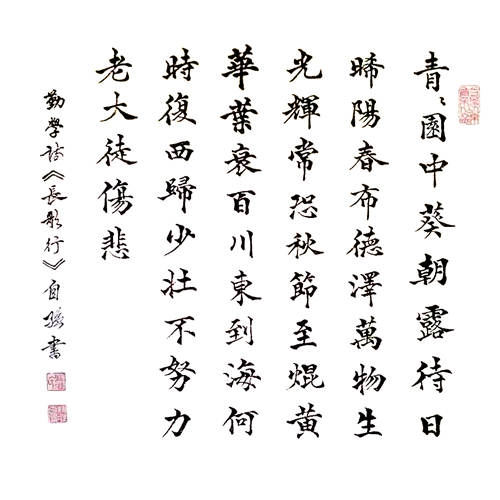 青〻園中葵朝露待日
晞陽春布德澤萬物生
光輝常恐秋節至焜黃
華葉衰百川東到海何
時復西歸少壯不努力
老大徒傷悲
勤學詩《長歌行》自強書